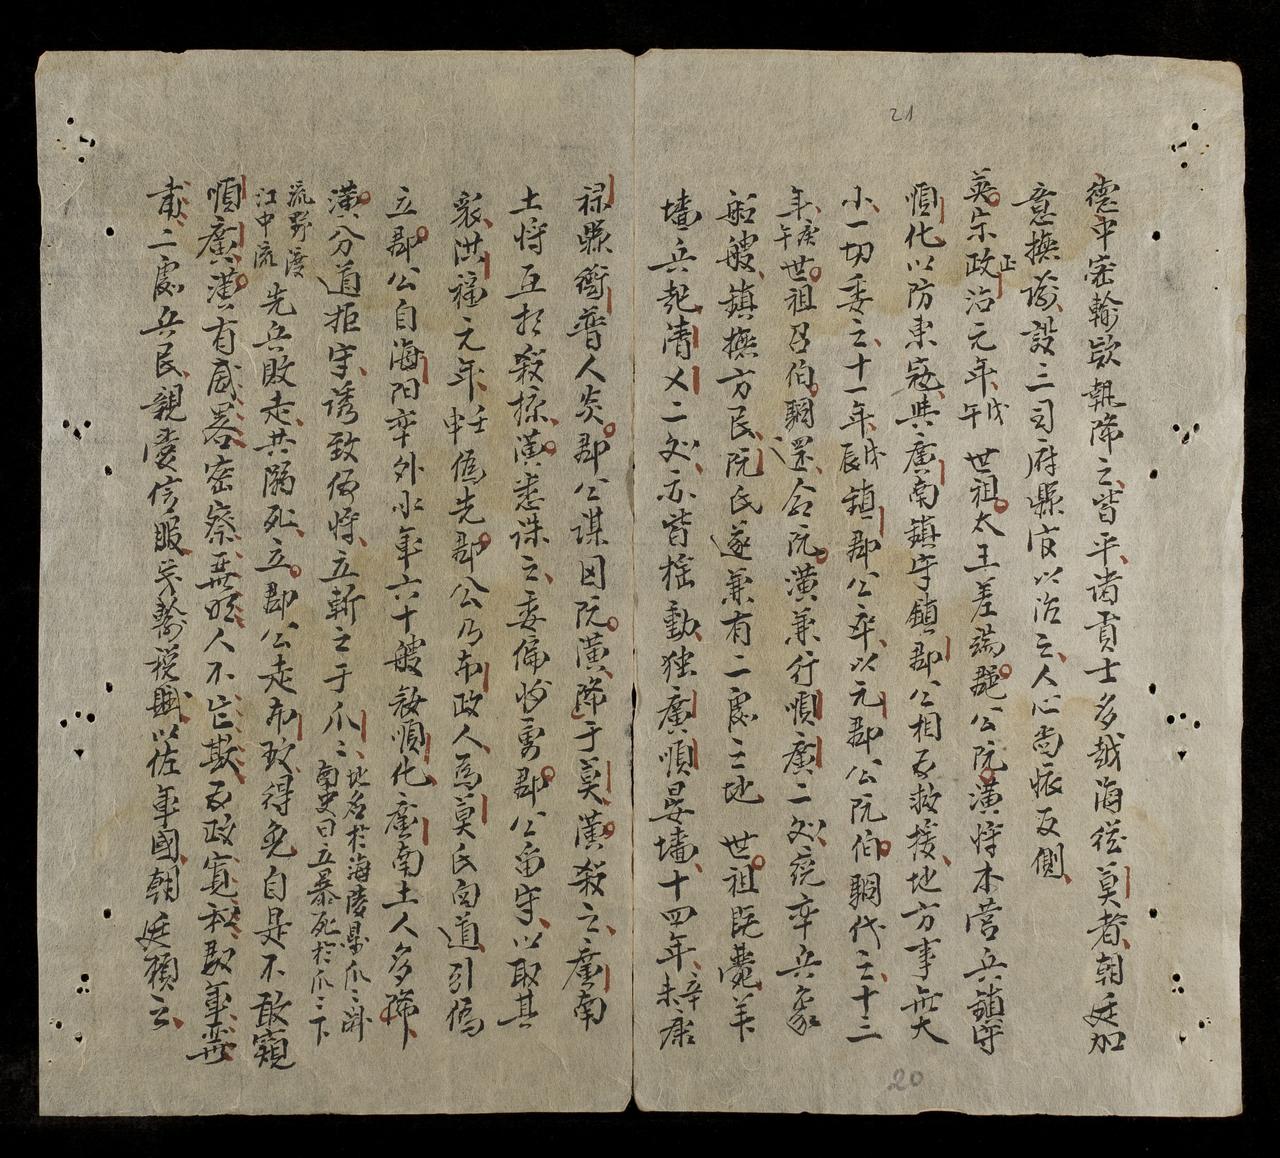 21
德中密輸欵執降之皆平尚貢士多越海從莫者朝廷加
意撫諭設三司府縣官以治之人心尚痕反側
英宗政正治元年戊午世祖太王差端郡公阮潢將本營兵鎮守
順化以防東寇與廣南鎮守鎮郡公相爲救援地方事無大
小一切委之十一年戊辰鎮郡公卒以元郡公阮伯駉代之十三
年庚午世祖召伯駉還令阮潢兼行順廣二処統率兵象
船艘鎮撫方民阮氏遂兼有二處之地世祖既薨羊
墻兵起清乂二処亦皆搖動独廣順晏墻十四年辛未康
祿縣衛普人炎郡公謀因阮潢降于莫潢殺之廣南
土將互相殺掠潢悉誅之委偏將勇郡公畱守以取其
衆洪福元年壬申僞先郡公乃布政人爲莫氏向道引僞
立郡公自海阳率外水軍六十艘欵順化廣南土人多降
潢分道拒守誘致僞將立斬之于爪〻地名於海陵縣爪〻淵
南史曰立暴死於爪〻下
流野渡
江中流先兵敗走共溺死立郡公走布政得免自是不敢窺
順廣潢有威畧密察無眩人不忘欺爲政寬和郡軍無
甫二處兵民親愛信服災輸税賦以佐軍國朝廷積之
20